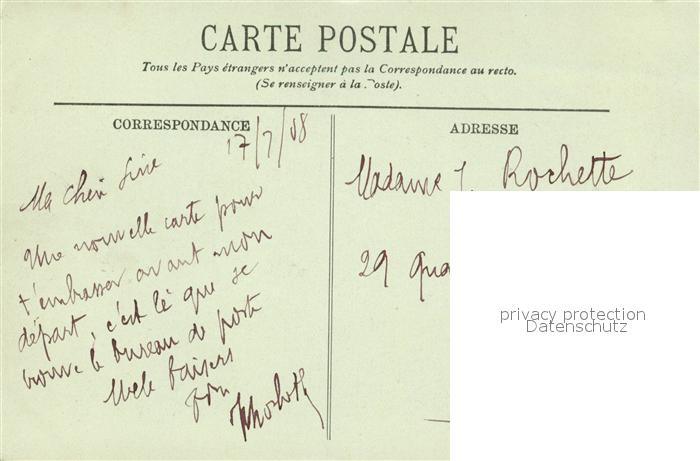 CARTE POSTALE
Tous les Pays étrangers n'acceptent pas la Correspondance au recto.
(Se renseigner à la Poste).
CORRESPONDANCE
17/7/08
Ma chère
Une nouvelle carte pour
t'embrasser avant mon
départ, c'est là que se
trouve le bureau de poste
Mille baisers
ADRESSE
Madame J. Rochette
29 Qua
privacy protection
Datenschutz